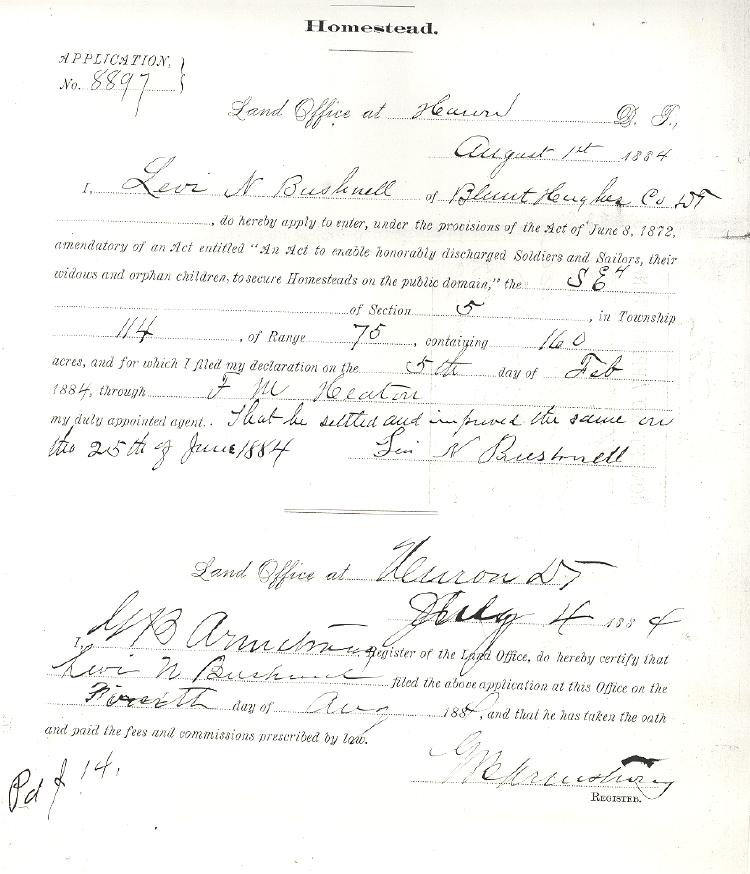 Homestead.
APPLICATION,
No. 8897
Land Office at Huron D. T.,
August 1st 1884
I, Levi N Bushnell of Blunt Hughes Co DT
, do hereby apply to enter, under the provisions of the Act of June 8, 1872,
amendatory of an Act entitled "An Act to enable honorably discharged Soldiers and Sailors, their
widows and orphan children, to secure Homesteads on the public domain," the SE4
of Section 5, in Township
114, of Range 75, containing 160
acres, and for which I filed my declaration on the 5th day of Feb
1884, through F M Heaton
my duly appointed agent. That he settled and improved the same on
the 25th of June 1884 Levi N Bushnell
Land Office at Huron DT
July 4 1884
I, Armstrong Register of the Land Office, do hereby certify that
Levi N Bushnell filed the above application at this Office on the
Fourth day of Aug 188, and that he has taken the oath
and paid the fees and commissions prescribed by law.
Pd $ 14.
Armstrong
REGISTER.